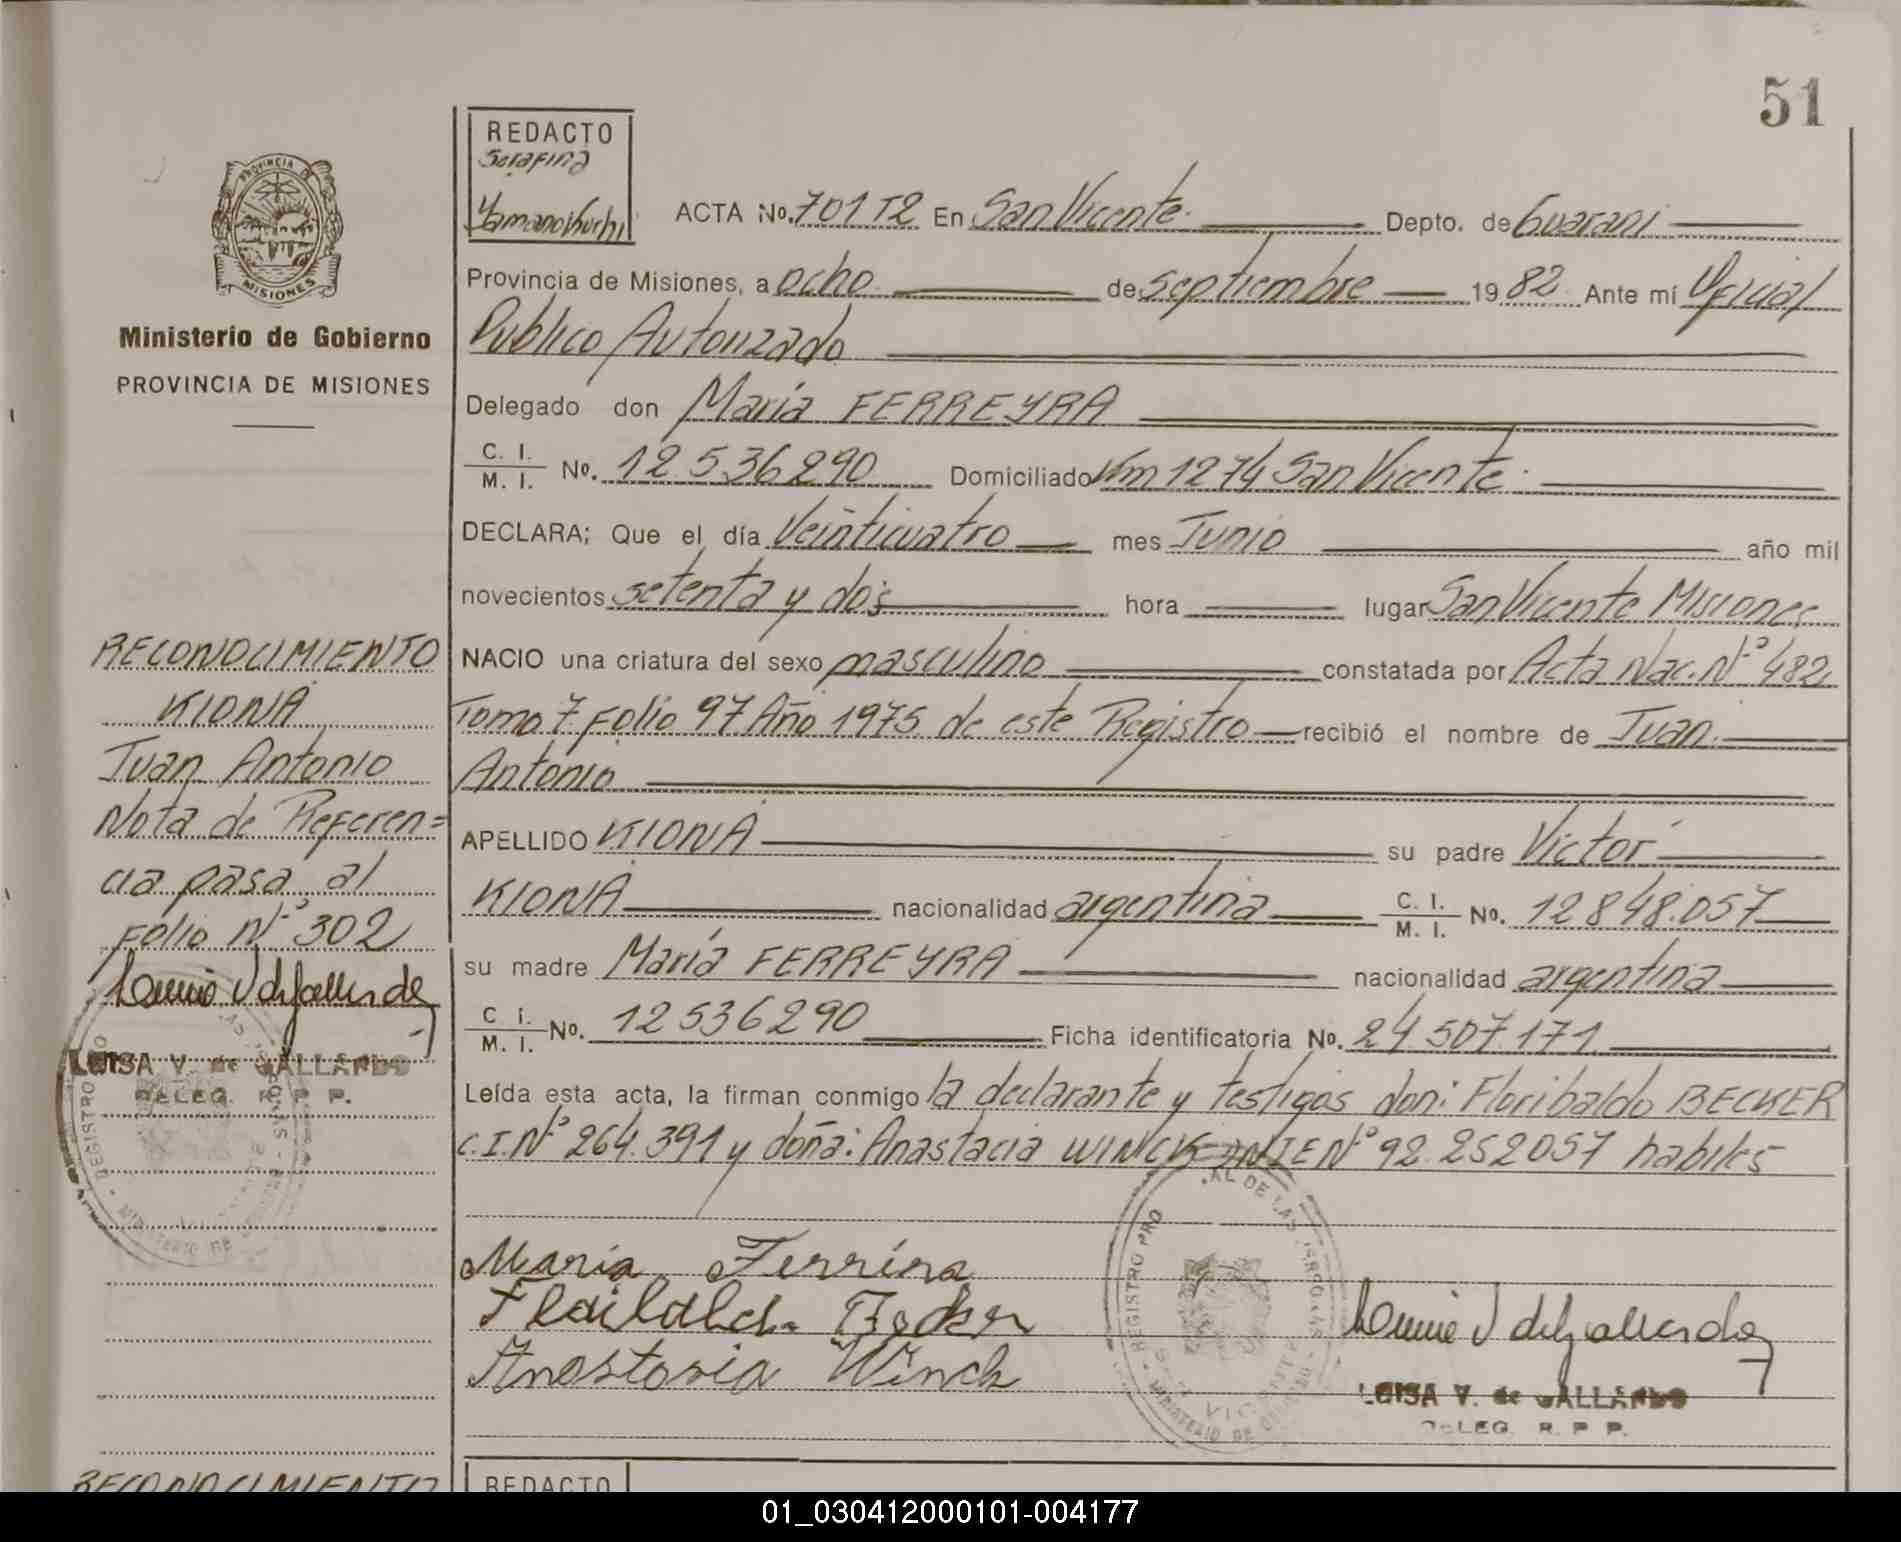 51
PROVINCIA DE
MISIONES
Ministerio de Gobierno
PROVINCIA DE MISIONES
RECONOCIMIENTO
KIONA
Juan Antonio
Nota de Referen=
cia pasa al
Folio Nº 302
LUISA V. de GALLARDO
DELEG. R. P. P.
RECONOCIMIENTO
REDACTO
Serafina
Yamanokuchi
ACTA No. 701 T2 En San Vicente. Depto. de Guarani
Provincia de Misiones, a ocho de septiembre 19 82 Ante mí Oficial
Publico Autorizado
Delegado don María FERREYRA
C. I.
M. I. No. 12.536290 Domiciliado Km 1274 San Vicente.
DECLARA; Que el día Veinticuatro mes Junio año mil
novecientos setenta y dos hora lugar San Vicente Misiones
NACIO una criatura del sexo masculino constatada por Acta Nac. Nº 482
Tomo 7 Folio 97 Año 1975 de este Registro recibió el nombre de Juan
Antonio
APELLIDO KIONA su padre Victor
KIONA nacionalidad argentina C. I.
M. I. No. 12.848.057
su madre María FERREYRA nacionalidad argentina
C. I.
M. I. No. 12536290 Ficha identificatoria No. 24.507.171
Leída esta acta, la firman conmigo la declarante y testigos don: Floribaldo BECKER
C.I. Nº 264.391 y doña: Anastacia WINCK DNIE Nº 92.252057 habiles
María Ferrira
Becker
Winck
LUISA V. de GALLARDO
DELEG. R. P. P.
REDACTO
01_030412000101-004177